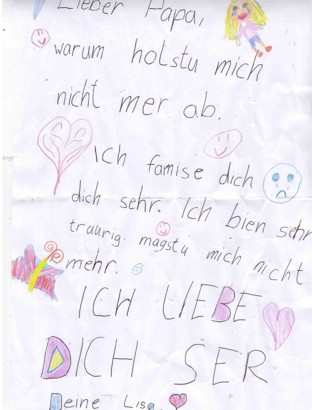 Lieber Papa,
warum holstu mich
nicht mer ab.
Ich famise dich
dich sehr. Ich bien sehr
traurig. magstu mich nicht
mehr.
ICH LIEBE
DICH SER
Deine Lisa.